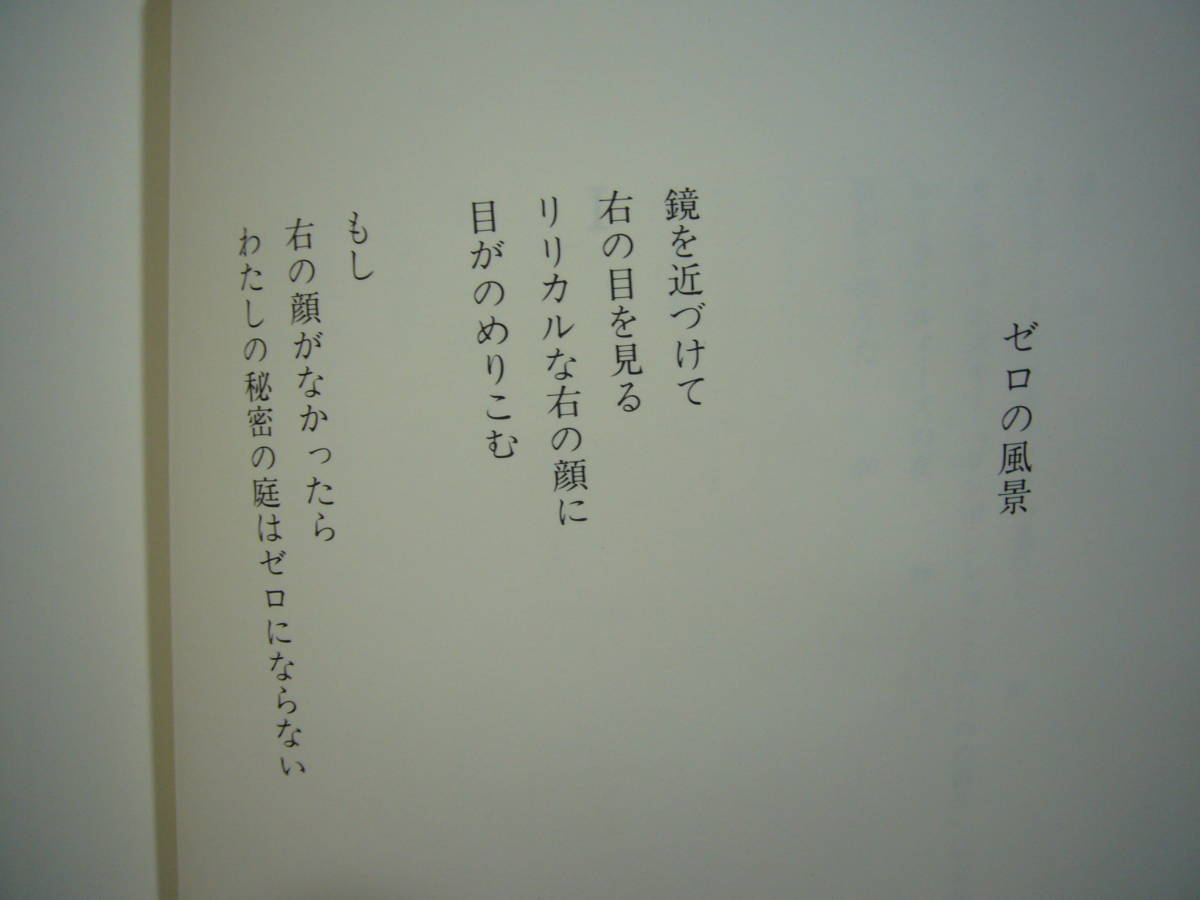 ゼロの風景
鏡を近づけて
右の目を見る
リリカルな右の顔に
目がのめりこむ
もし
右の顔がなかったら
わたしの秘密の庭はゼロにならない